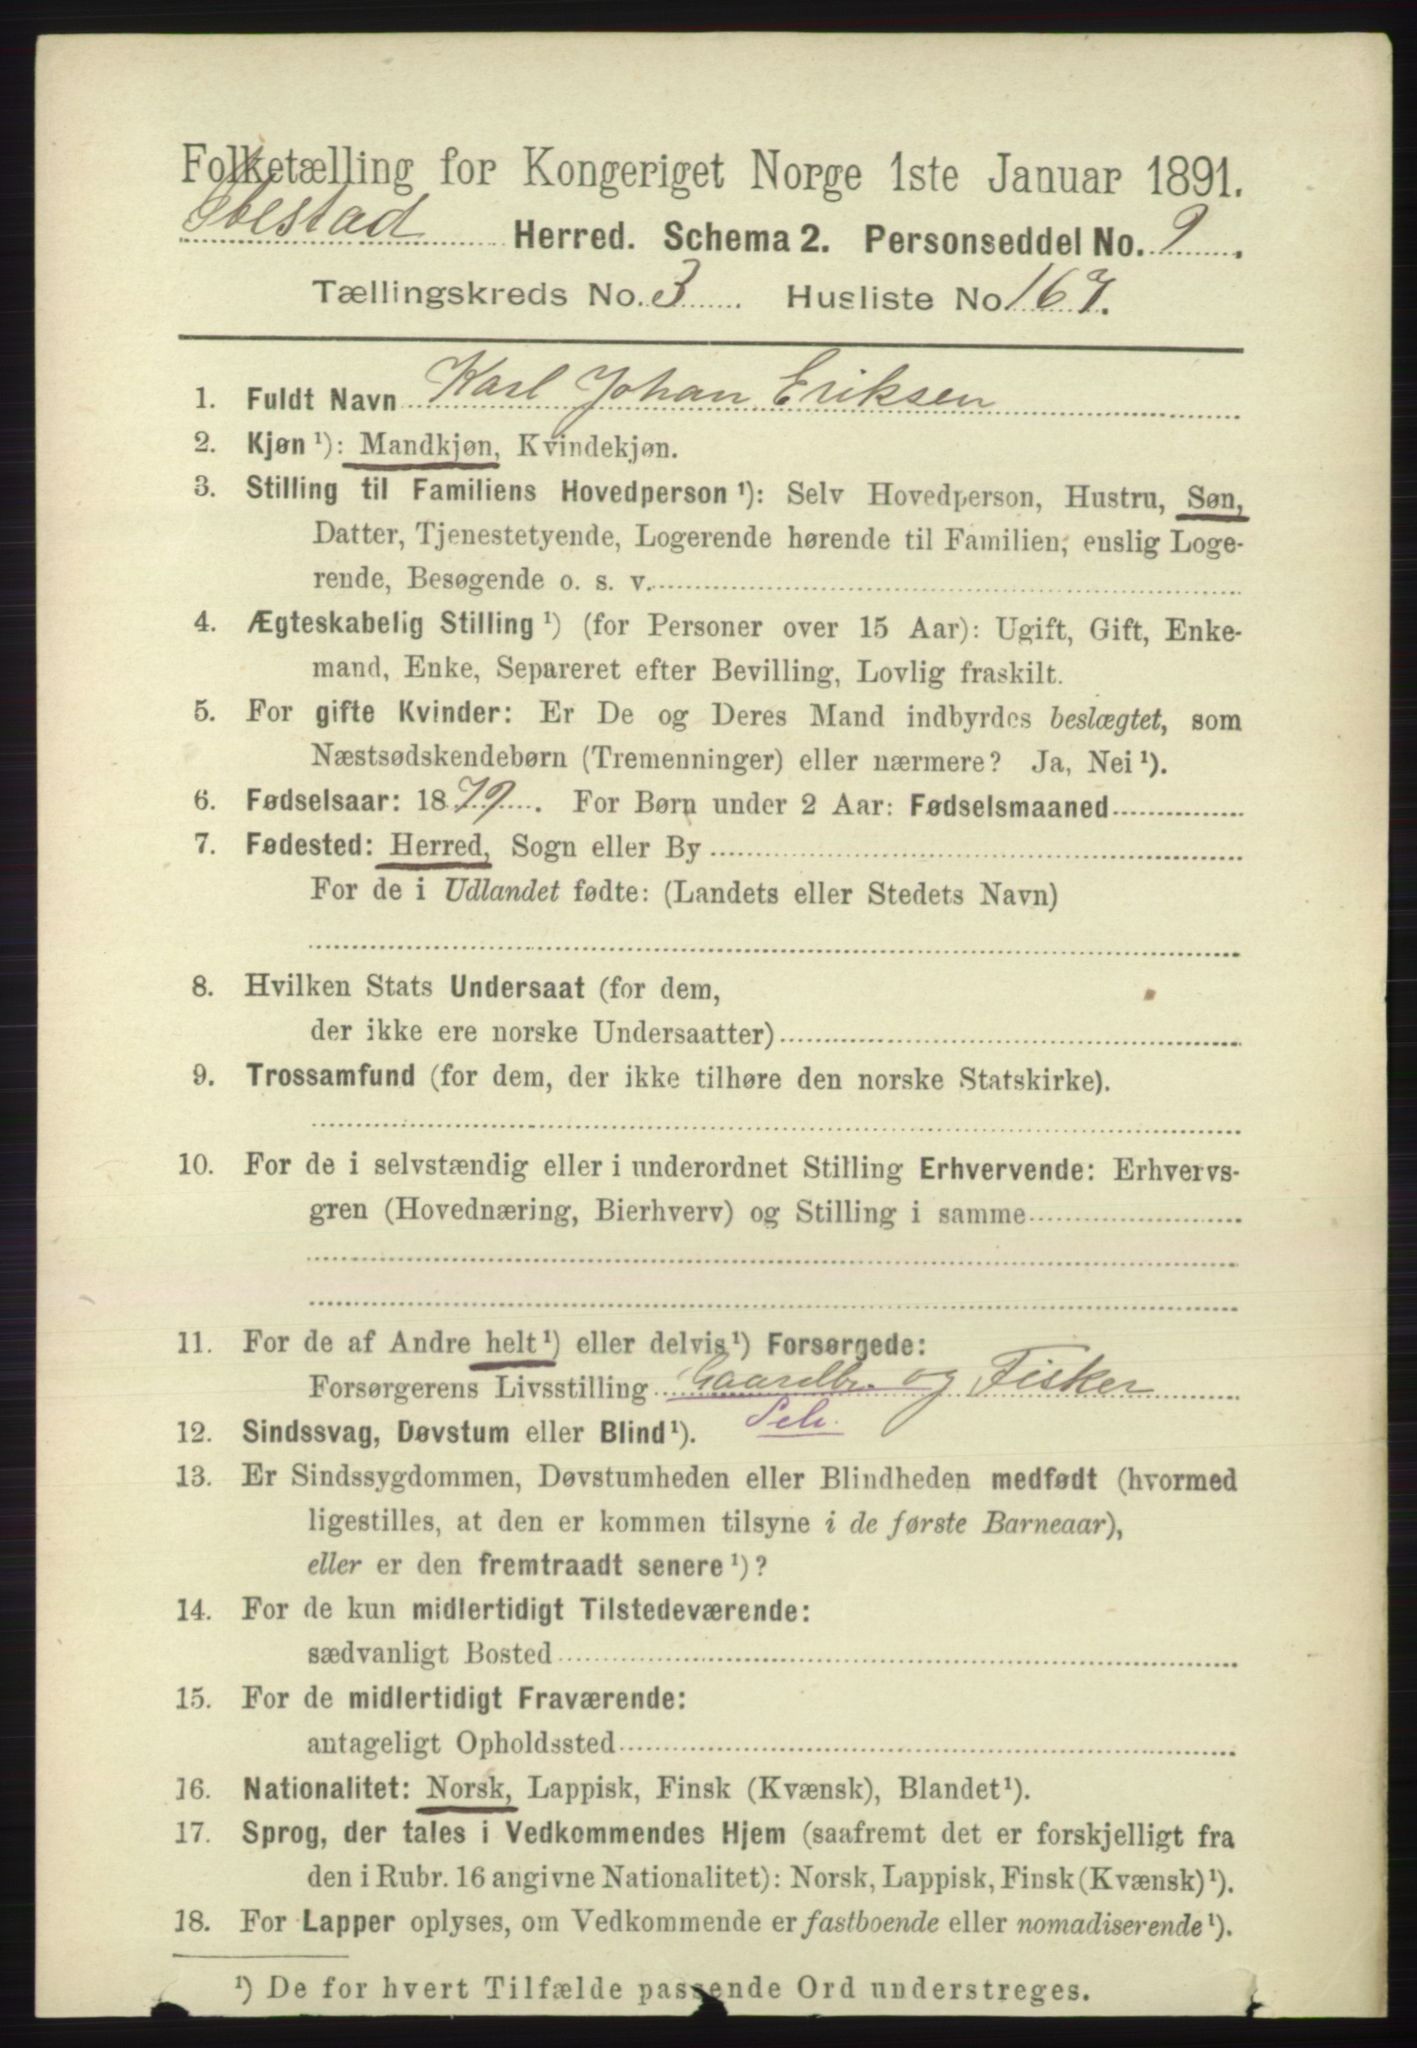 Folketælling for Kongeriget Norge 1ste Januar 1891.
Ibestad Herred. Schema 2. Personseddel No. 9.
Tællingskreds No. 3. Husliste No 167.
1. Fuldt Navn Karl Johan Eriksen
2. Kjøn ¹): Mandkjøn, Kvindekjøn.
3. Stilling til Familiens Hovedperson ¹): Selv Hovedperson, Hustru, Søn,
Datter, Tjenestetyende, Logerende hørende til Familien, enslig Loge-
rende, Besøgende o. s. v.
4. Ægteskabelig Stilling ¹) (for Personer over 15 Aar): Ugift, Gift, Enke-
mand, Enke, Separeret efter Bevilling, Lovlig fraskilt.
5. For gifte Kvinder: Er De og Deres Mand indbyrdes beslægtet, som
Næstsødskendebørn (Tremenninger) eller nærmere? Ja, Nei ¹).
6. Fødselsaar: 1879. For Børn under 2 Aar: Fødselsmaaned
7. Fødested: Herred, Sogn eller By
For de i Udlandet fødte: (Landets eller Stedets Navn)
8. Hvilken Stats Undersaat (for dem,
der ikke ere norske Undersaatter)
9. Trossamfund (for dem, der ikke tilhøre den norske Statskirke).
10. For de i selvstændig eller i underordnet Stilling Erhvervende: Erhvervs-
gren (Hovednæring, Bierhverv) og Stilling i samme
11. For de af Andre helt ¹) eller delvis ¹) Forsørgede:
Forsørgerens Livsstilling Gaardbr. og Fisker
Selv.
12. Sindssvag, Døvstum eller Blind ¹).
13. Er Sindssygdommen, Døvstumheden eller Blindheden medfødt (hvormed
ligestilles, at den er kommen tilsyne i de første Barneaar),
eller er den fremtraadt senere ¹)?
14. For de kun midlertidigt Tilstedeværende:
sædvanligt Bosted
15. For de midlertidigt Fraværende:
antageligt Opholdssted
16. Nationalitet: Norsk, Lappisk, Finsk (Kvænsk), Blandet ¹).
17. Sprog, der tales i Vedkommendes Hjem (saafremt det er forskjelligt fra
den i Rubr. 16 angivne Nationalitet): Norsk, Lappisk, Finsk (Kvænsk) ¹).
18. For Lapper oplyses, om Vedkommende er fastboende eller nomadiserende ¹).
¹) De for hvert Tilfælde passende Ord understreges.